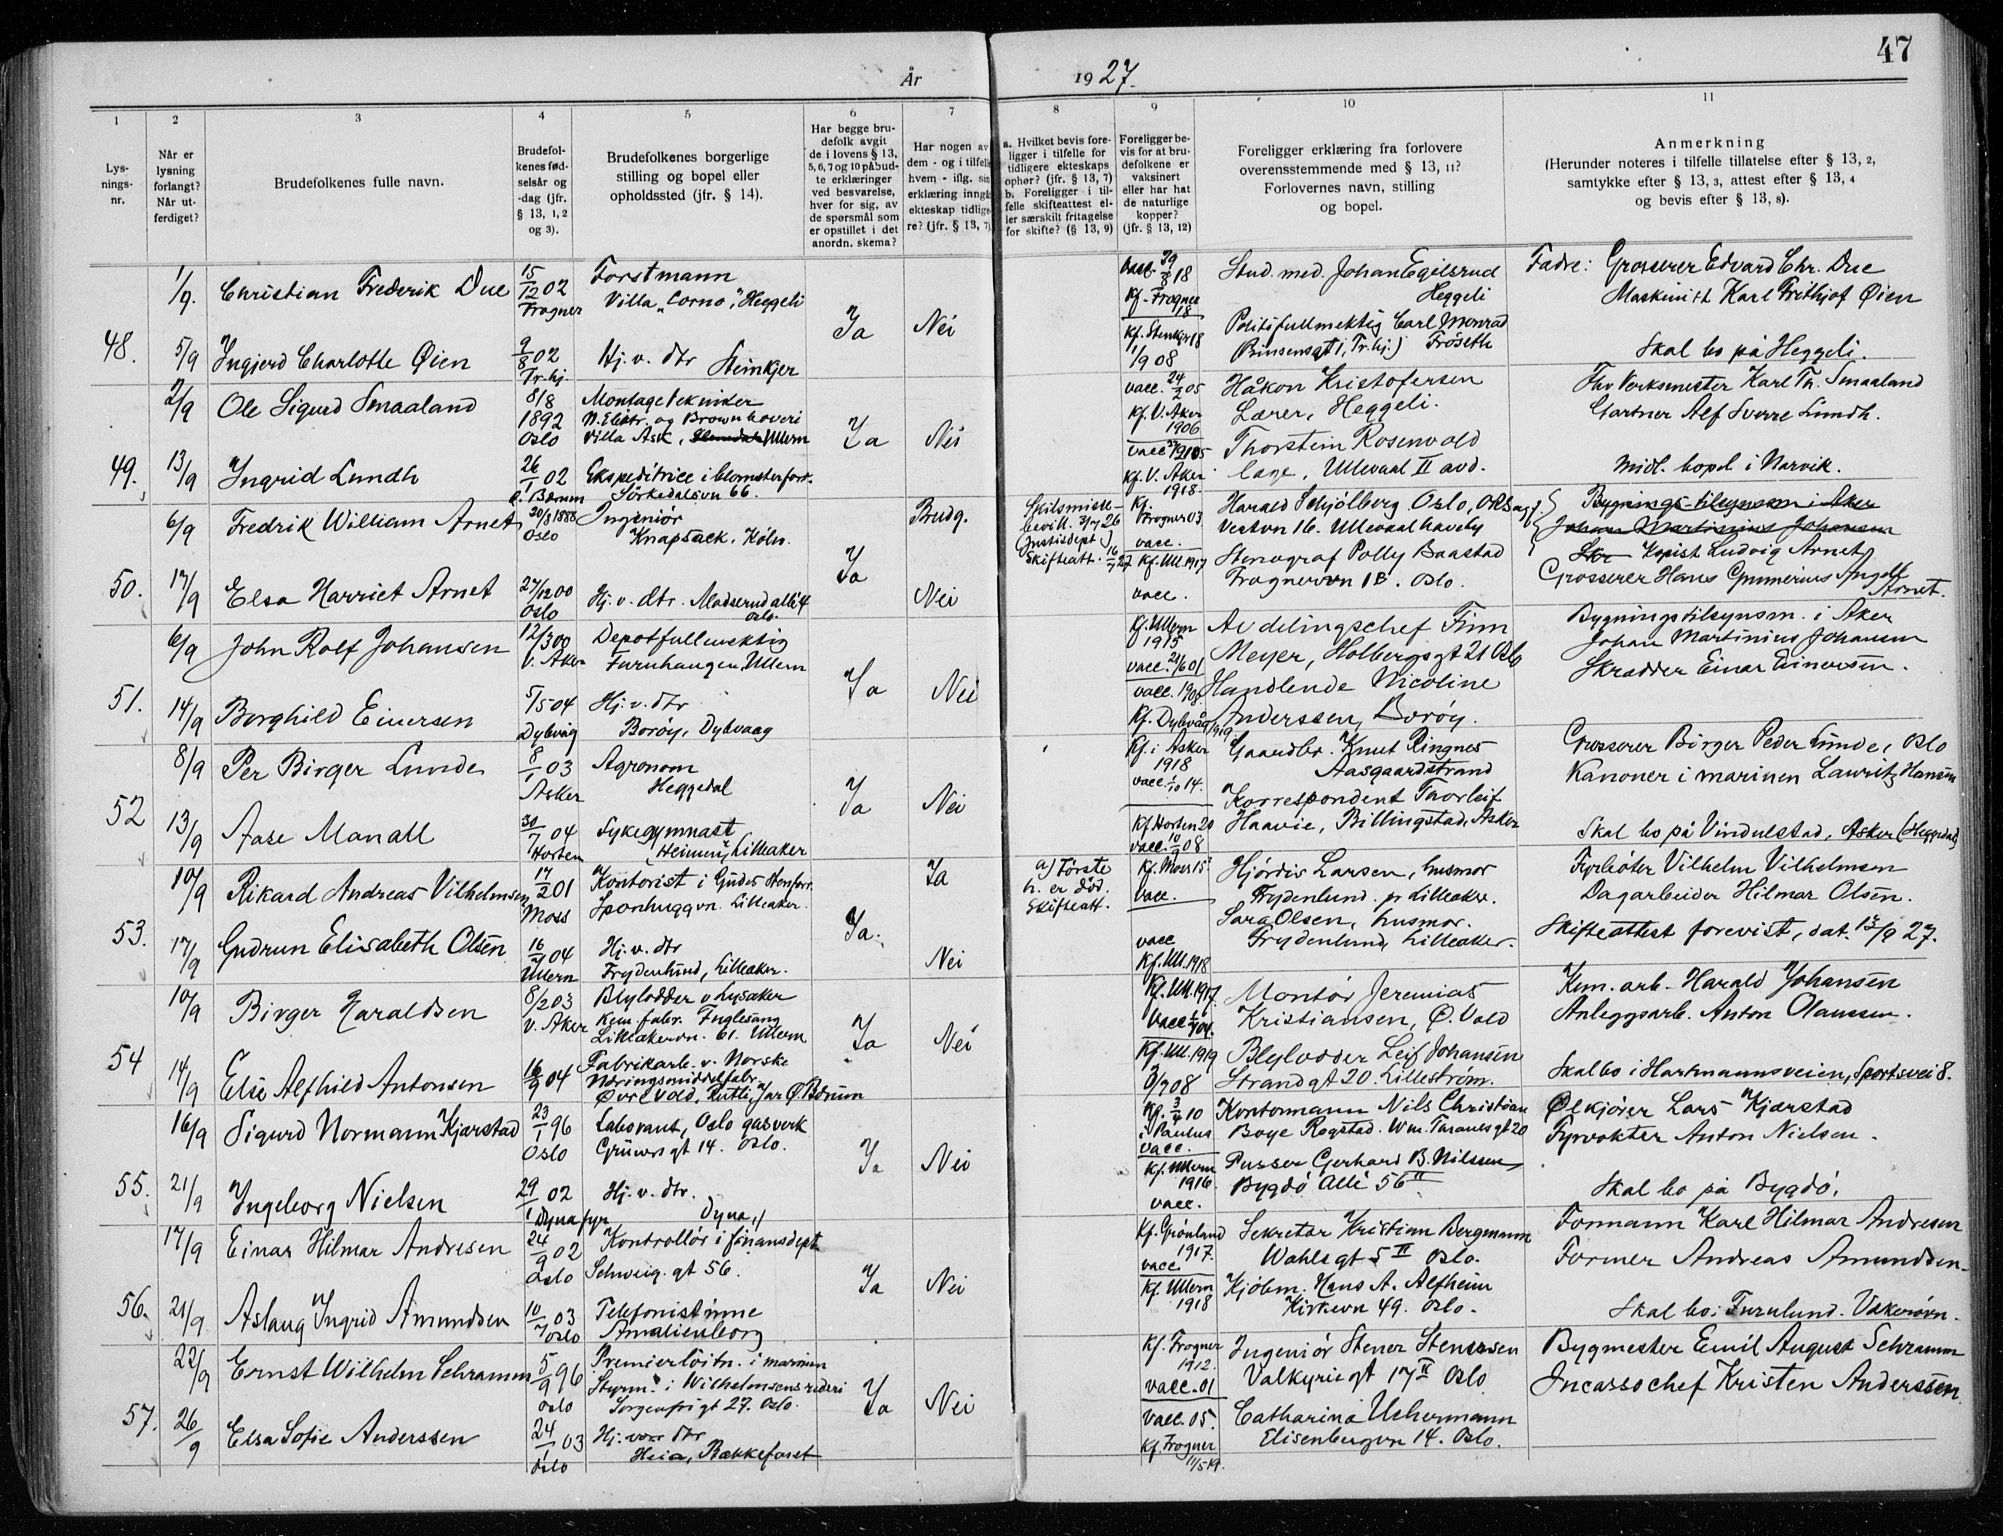 47
År 1927.
1 2 3 4 5 6 7 8 9 10 11
Lysnings-nr.
Når er lysning forlangt? Når utferdiget?
Brudefolkenes fulle navn.
Brudefolkenes fødselsår og -dag (jfr. § 13, 1, 2 og 3).
Brudefolkenes borgerlige stilling og bopel eller opholdssted (jfr. § 14).
Har begge brudefolk avgit de i lovens § 13, 5, 6, 7 og 10 påbudte erklæringer ved besvarelse, hver for sig, av de spørsmål som er opstillet i det anordn. skema?
Har nogen av dem - og i tilfelle hvem - iflg. sin erklæring inngått ekteskap tidligere? (jfr. § 13, 7)
a. Hvilket bevis foreligger i tilfelle for tidligere ekteskaps ophør? (jfr. § 13, 7)
b. Foreligger i tilfelle skifteattest eller særskilt fritagelse for skifte? (§ 13, 9)
Foreligger bevis for at brudefolkene er vaksinert eller har hat de naturlige kopper? (jfr. § 13, 12)
Foreligger erklæring fra forlovere overensstemmende med § 13, 11? Forlovernes navn, stilling og bopel.
Anmerkning
(Herunder noteres i tilfelle tillatelse efter § 13, 2, samtykke efter § 13, 3, attest efter § 13, 4 og bevis efter § 13, 8).
48.
1/9. Christian Frederik Due 15/12 02 Frogner Forstmann Villa "Corno", Heggeli
Ja Nei
Kf. Frogner 18
Stud. med. Johan Egilsrud Heggeli
Fadre: Grosserer Edvard Chr. Due
Maskinist Karl Frithjof Øien
5/9 Ingjerd Charlotte Øien 9/8 02 Tr.hj. Hj. v. dtr Steinkjer
Kf. Stenkjer 18
1/9 08
Politifullmektig Carl Monrad Frøseth
Brinsensgt 1, Tr.hj.)
Skal bo på Heggeli.
49.
2/9 Ole Sigurd Smaaland 8/8 1892 Oslo Montagetekniker N. Elektr. og Brown Boveri Villa Ask, Ullern
Ja Nei
vacc. 24/2 05
Kf. V. Aker 1906
Håkon Kristofersen
Lærer, Heggeli.
Fhv Verksmester Karl Th. Smaaland
Gartner Alf Sverre Lundh.
13/9 Ingrid Lundh 26/1 02 Ø. Bærum Ekspeditrice i blomsterforr. Sörkedalsvn 66.
Kf. V. Aker 1918.
Thorstein Rosenvold
læge, Ullevaal II avd.
Midl. bopel i Narvik.
50.
6/9 Fredrik William Arnet 20/8 1888 Oslo Ingeniör Knapsack, Köln.
Ja Brudg.
Skilsmisse-bevill. 2/7 26 (Justisdept.)
Skifteatt. 16/7 27
Kf. Frogner 03
vacc.
Harald Schjölberg Oslo,
Vestvn 16. Ullevaal haveby
Bygnings-tilsynsm i Aker
Johan Martinius Johansen
Skr Kopist Ludvig Arnet
Grosserer Hans Gunnerius Angell Arnet.
17/9 Elsa Harriet Arnet 27/12 00 Oslo Hj. v. dtr. Madserud allé 4 Oslo.
Nei
Kf. Ull. 1917
vacc.
Stenograf Polly Baastad
Frognervn 1B. Oslo.
51.
6/9 John Rolf Johansen 12/3 00 V. Aker Depotfullmektig Furuhaugen, Ullern
Ja Nei
Kf. Ullern 1915
vacc. 21/6 01
Avdelingschef Finn
Meyer, Holbergsgt 21 Oslo
Bygningstilsynsm. i Aker
Johan Martinius Johansen
Skrædder Einar Einersen.
14/9 Borghild Einersen 5/5 04 Dybvåg Hj. v. dtr Borøy, Dybvaag
vacc. 1908
Kf. Dybvåg 1919
Handlende Nicoline
Anderssen, Borøy.
52
8/9 Per Birger Lunde 8/1 03 Asker Agronom Heggedal
Ja Nei
Kf. i Asker 1918
vacc. 1/10 14.
Gaardbr. Knut Ringnes
Aasgaardstrand
Grosserer Birger Peder Lunde, Oslo
Kanoner i marinen Lauritz Hansen
13/9 Aase Manall 30/7 04 Horten Sykegymnast "Heimen", Lilleaker
Kf. Horten 20
vacc. 10/9 08
Korrespondent Thorleif
Haavie, Billingstad, Asker
Skal bo på Vindulstad, Asker (Heggedal)
53.
10/9 Rikard Andreas Vilhelmsen 17/2 01 Moss Kontorist i Gudes Stenforr. Sponhuggvn. Lilleaker.
Ja. Ja
a) Første h. er död. Skifteatt.
Kf. Moss 15
vacc.
Hjördis Larsen, husmor
Frydenlund pr Lilleaker.
Fyrböter Vilhelm Vilhelmsen
Dagarbeider Hilmar Olsen.
17/9 Gudrun Elisabeth Olsen 16/9 04 Ullern Hj. v. dtr Frydenlund, Lilleaker.
Nei
vacc
Kf. Ull. 1918
Sara Olsen, husmor.
Frydenlund, Lilleaker.
Skifteattest forevist, dat. 13/9 27.
54
10/9 Birger Haraldsen 8/2 03 V. Aker Blylodder v. Lysaker Kem. fabr. Fuglesang Lilleakervn. 61. Ullern
Ja Nei
Kf. Ull. 1917.
Montör Jeremias
Kristiansen, Ø. Vold
Kem. arb. Harald Johansen
Anleggsarb. Anton Olaussen.
14/9 Else Alfhild Antonsen 16/9 04 Fabrikarb. v. Norske Næringsmiddelfabr. Øvre Vold, Jar Ø. Bærum
Kf. Ull. 1919
Blylodder Leif Johansen
Strandgt 20. Lilleström.
Skal bo i Hartmannsveien, Sportsvei 8.
55.
16/9 Sigurd Normann Kjærstad 23/1 96 Oslo Laborant, Oslo gasverk Grünersgt 14. Oslo.
Ja Nei
i Paulus
vacc.
Kontormann Nils Christian
Boye Rogstad. Wm. Thranesgt 20
Ølkjører Lars Kjærstad
Fyrvokter Anton Nielsen.
21/9 Ingeborg Nielsen 29/1 02 Dyna fyr Hj. v. dtr. Dyna
Kf. Ullern 1916.
vacc.
Pusser Gerhard B. Nilssen
Bygdö Allé 56 II
Skal bo på Bygdö.
56.
17/9 Einar Hilmar Andresen 24/9 02 Oslo Kontrollör i finansdept. Schweig.gt 56.
Ja Nei
Kf. Grønland 1917.
vacc.
Sekretær Kristian Bergmann
Wahlsgt 5 II Oslo.
Formann Karl Hilmar Andresen
Former Andreas Amundsen
21/9 Aslaug Ingrid Amundsen 10/7 03 Oslo Telefonistinne Amalienborg
Kf. Ullern 1918
Kjöbm. Hans A. Alfheim
Kirkevn 49. Oslo.
Skal bo: Furulund. Vækerövn.
57.
22/9 Ernst Wilhelm Schramm 5/9 96 Oslo Premierlöitn. i marinen Styrm. i Wilhelmsens rederi Sorgenfrigt 27. Oslo.
Ja Nei
Kf. Frogner 1912.
vacc. 01
Ingeniör Stener Stenersen
Valkyriegt 17 II Oslo
Bygmester Emil August Schramm
Incassochef Kristen Anderssen.
26/9 Elsa Sofie Anderssen 24/1 03 Oslo Hj. vær dtr Heia, Bækkefaret
vacc. 05.
Kf. Frogner 11/5 19.
Catharina Uchermann
Elisenbergvn 14. Oslo.